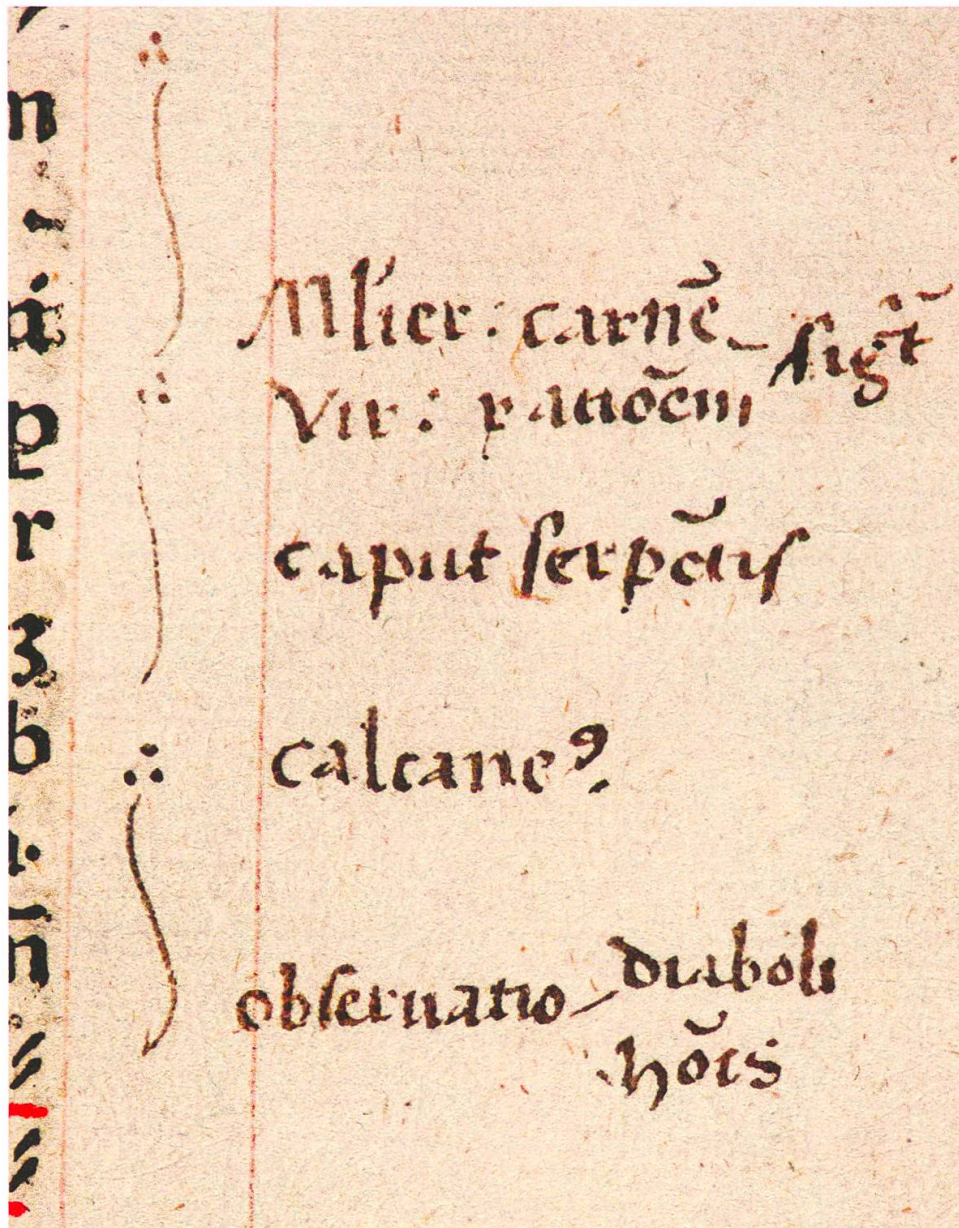 Mlier : carnē sigt̄
Vir : rationē̄m
caput serpētis
calcaneꝰ.
obseruatio diaboli
hōis